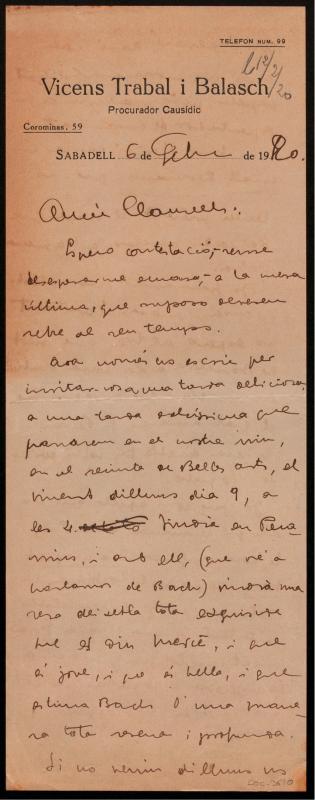 TELEFON NUM. 99
12/2/20
Vicens Trabal i Balasch
Procurador Causídic
Corominas, 59
SABADELL 6 de Febr de 1920.
Amic Clausells:
Espero contestació, sense
desesperar-me encara, a la meva
última, que suposo deurem
rebre al seu temps.
Ara només us escric per
invitar-vos a una tarda deliciosa,
a una tarda que
passarem en el nostre niu,
en el recinte de Belles arts, el
vinent dilluns dia 9, a
les 4. Vindrà en Pera-
mius, i amb ell, (que ve a
parlarnos de Bach) vindrà una
tota exquisida
que es diu Mercè, i que
és jove, i que és bella, i que
estima Bach d'una mane-
ra tota serena i profunda.
Si no veniu dilluns us